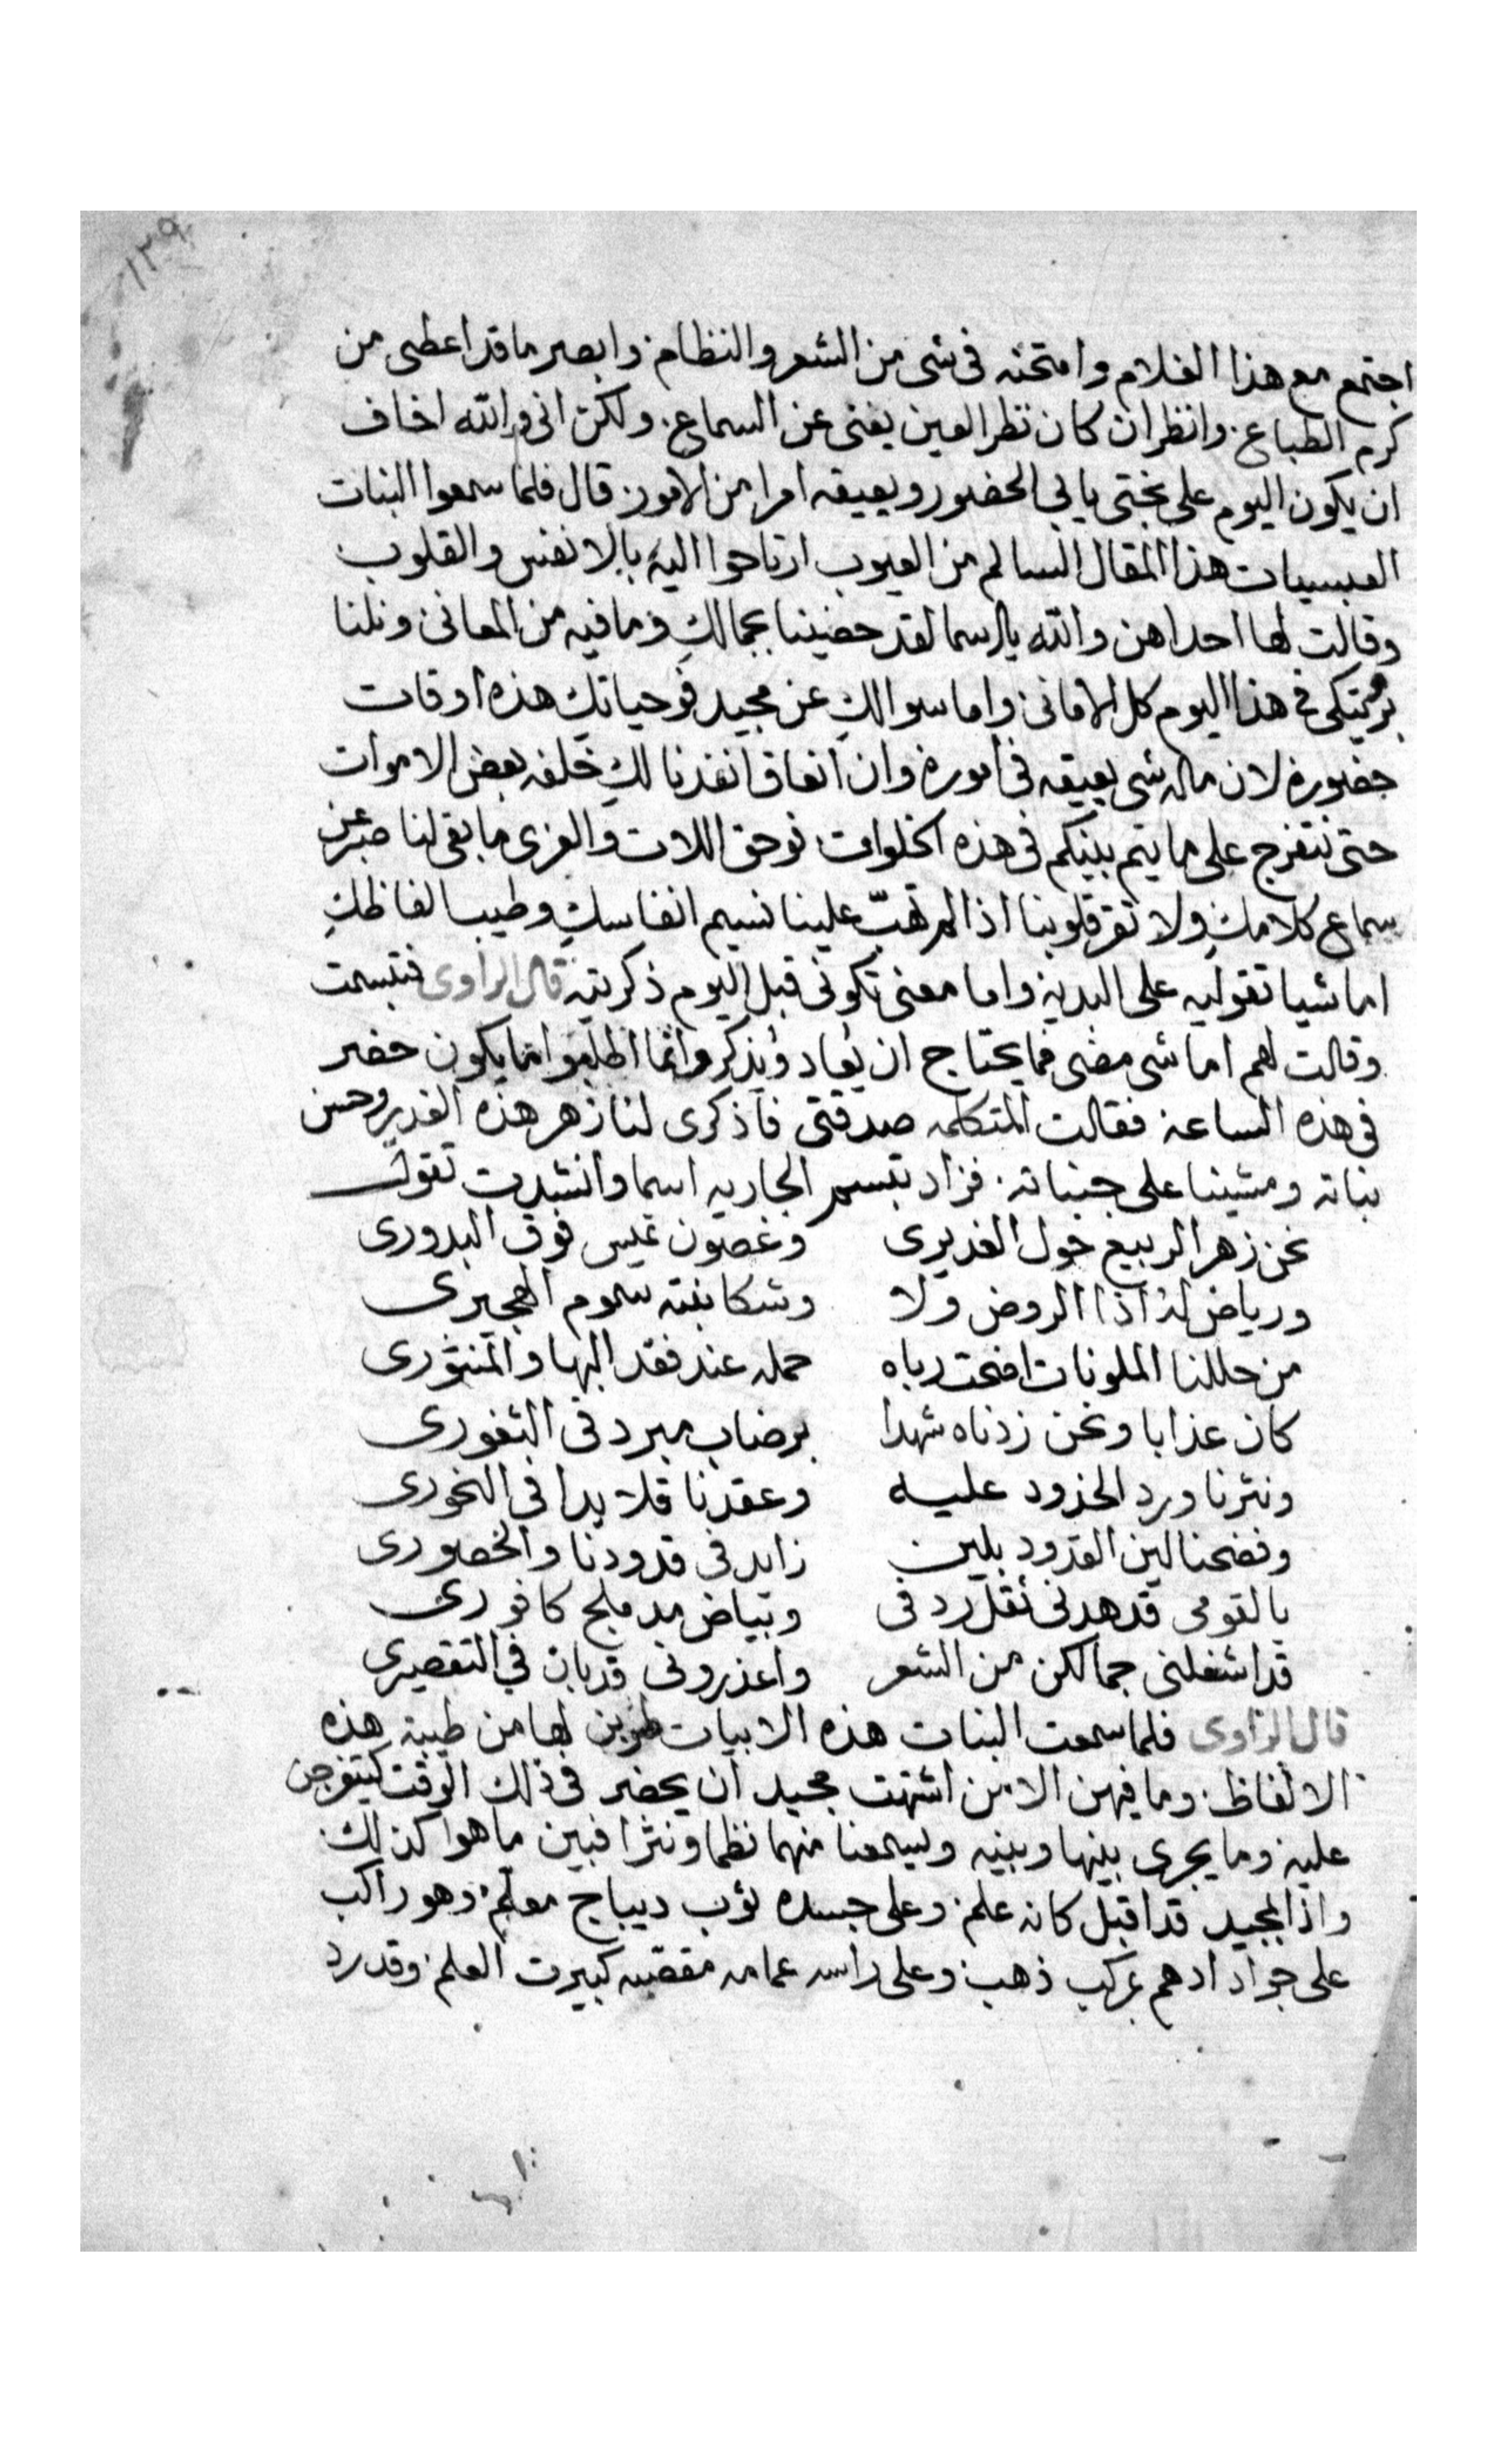 ١٢٩
اجتمع مع هذا الغلام وامتحنه فى شى من الشعر والنظام وابصر ما قد اعطى من
كرم الطباع وانظر ان كان نظر العين يغنى عن السماع ولكن انى والله اخاف
ان يكون اليوم على بختى يابى الحضور ويعيقه امرا من الامور قال فلما سمعوا البنات
العبسيات هذا المقال السالم من العيوب ارتاحوا اليه بالانفس والقلوب
وقالت لها احداهن والله يا اسما لقد حضينا بجمالك وما فيه من المعانى ونلنا
فى هذا اليوم كل الامانى واما سوالك عن مجيد فوحياتك هذه اوقات
حضوره لان ماله شى يعيقه فى اموره وان انعاق انفدنا لك خلفه بعض الاموات
حتى نتفرج على ما يتم بينكم فى هذه الخلوات فوحق اللات والعزى ما بقى لنا صبر عن
سماع كلامك ولا تقر قلوبنا اذا لم تهب علينا نسيم انفاسك وطيب الفاظك
اما شيا تقوليه على البديه واما معنى تكونى قبل اليوم ذكرتيه قال الراوى فتبسمت
وقالت لهم اما شى مضى فما يحتاج ان يعاد ويذكر وانما اطلبوا مما يكون حضر
فى هذه الساعه فقالت المتكلمه صدقتى فاذكرى لنا زهر هذه الغدير وحسن
نباته ومشينا على جنباته فزاد تبسم الجاريه اسما وانشدت تقول
نحن زهر الربيع حول الغديرى وغصون تميس فوق البدورى
ورياض اذا الروض ولا وشكا نبته سموم الهجيرى
من حللنا الملونات اضحت رباه حمله عند فقد البها والمنثورى
كان عذابا ونحن زدناه شهدا برضاب مبرد فى الثغورى
ونثرنا ورد الخدود عليه وعقدنا قلايدا فى النحورى
وفضحنا لين القدود بلين زايد فى قدودنا والخصورى
يا لقومى قد هدنى ثقل رد فى وبياض مدملج كافورى
قد اشغلنى جمالكن من الشعر واعذرونى قد بان فى التقصيرى
قال الراوى فلما سمعت البنات هذه الابيات طربن لها من طيبة هذه
الالفاظ وما فيهن الا من اشتهت مجيد ان يحضر فى ذلك الوقت ليتفرجن
عليه وما يجرى بينها وبينه ويسمعنا منهما نظما ونثرا فبين ما هوا كذلك
واذا بمجيد قد اقبل كانه علم وعلى جسده ثوب ديباج معلم وهو راكب
على جواد ادهم بمركب ذهب وعلى راسه عمامه مقصبه كبيرت العلم وقد رد